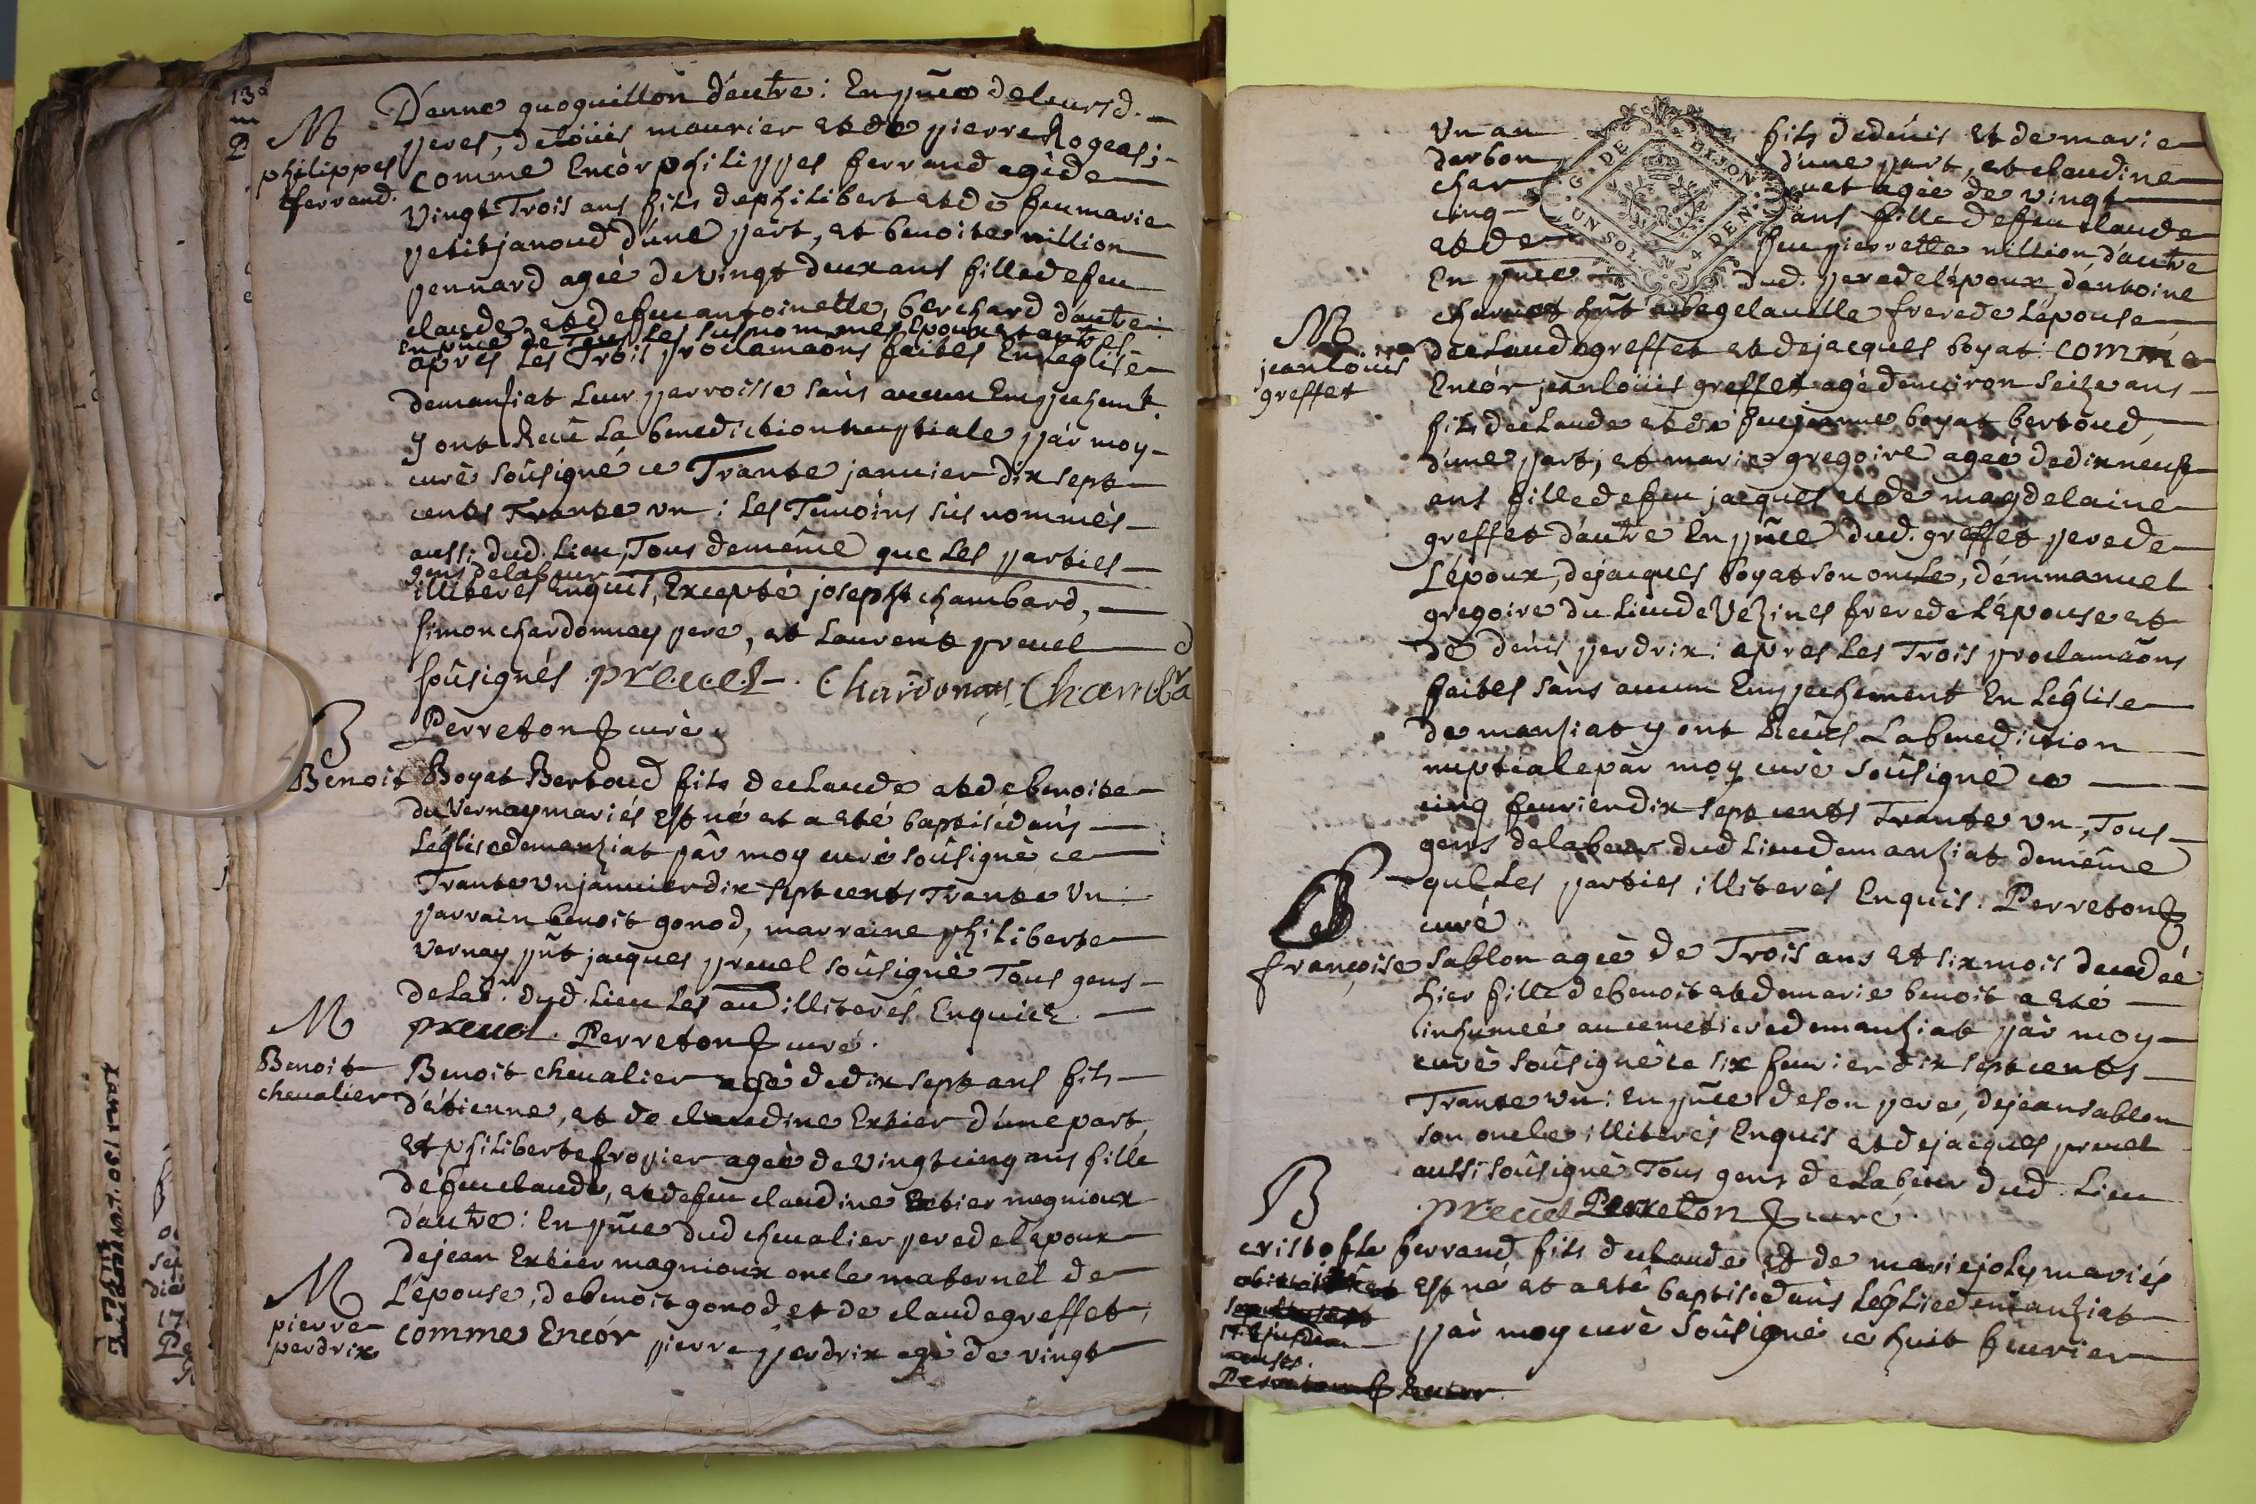 D'enne guoguillon d'eutre : En pñce de leurs d.
peres, de loüis maurier et de pierre Rogeas ;
M
philippes
ferraud.
comme Encòr philippes ferraud agé de
vingt Trois ans fils de philibert et de feu marie
petitjanoud d'une part, et benoite million
pennard ageé de vingt deux ans fille de feu
claude et de feu antoinette berchard d'autre :
En pñce de Tous Les susnommés Epoux et autres
apres Les Trois proclamaõns faites En Leglise
de manziat Leur parroisse sans aucun Empechemt.
y ont Receu La benediction nuptiale pâr moy
curé soûsigné ce Trante janvier dix sept
cents Trante un : Les Temoins sùs nommés
aussi dud. Lieu, Tous de même que Les parties
gens de labeur
illiterés Enquis, Excepté joseph chambard,
simon chardonnay pere, et Laurent preuel
soûsignés. preuel. Chardonay Chambard
Perreton curé
B
Benoit Boyat Bertoud fils de claude et de benoite
du vernay mariés est né et a eté baptisé dans
L'église de manziat pâr moy curé soûsigné ce
Trante un janvier dix sept cents Trante un :
parrain benoit gonod, marraine philiberte
vernay pñt jacques preuel soûsigné Tous gens
de Labr. dud. Lieu Les au. illiterés Enquiz.
preuel. Perreton curé.
M
Benoit
chevalier
Benoit chevalier agé de dix sept ans fils
d'étienne, et de claudine Extier d'une part
et philiberte froyier ageé de vingt cinq ans fille
de feu claude, et de feu claudine Extier magnioux
d'autre : En pñce dud chevalier pere de l'epoux
de jean Extier magnioux oncle maternel de
L'épouse, de benoit gonod et de claude greffet ;
M
pierre
perdrix
comme Encòr pierre perdrix agé de vingt
un an fils de denis et de marie
darbon d'une part, et claudine
char uet ageé de vingt
cinq ans fille de feu claude
et de feu pierrette million d'autre
En pñce dud. pere de l'époux d'antoine
G. DE DIJON
UN SOL 4 DEN.
charuet frere de L'épouse
de claude greffet et de jacques boyat : comme
M
jean loüis
greffet
Encór jean loüis greffet agé d'environ seize ans
fils de claude et de feu jeanne boyat bertoud,
d'une part ; et marie gregoire ageé de dix neuf
ans fille de feu jacques et de magdelaine
greffet d'autre En pñce dud. greffet pere de
L'époux, de jacques boyat son oncle, d'emmanuel
gregoire du Lieu de Vézines frere de L'épouse et
de denis perdrix : apres Les Trois proclamaõns
faites sàns aucun Empechement En L'église
de manziat y ont Receus La benediction
nuptiale pàr moy curé soûsigné ce
cinq feurier dix sept cents Trante un, Tous
gens de labeur dud Lieu de manziat de même
que Les parties illiterés Enquis. Perreton
curé.
françoise sablon ageé de Trois ans et six mois decedeé
hier fille de benoit et de marie benoit a eté
inhumeé au cemetiere de manziat pàr moy
curé soûsigné ce six feurier dix sept cents
Trante un : En pñce de son pere, de jean sablon
son oncle illiterés Enquis et de jacques preuel
aussi soûsigné Tous gens de Labeur dud. Lieu
preuel Perreton curé.
B
cristofle ferraud fils de claude et de marie joly mariés
est né et a eté baptisé dans L'église de manziat
pàr moy curé soûsigné ce huit feurier